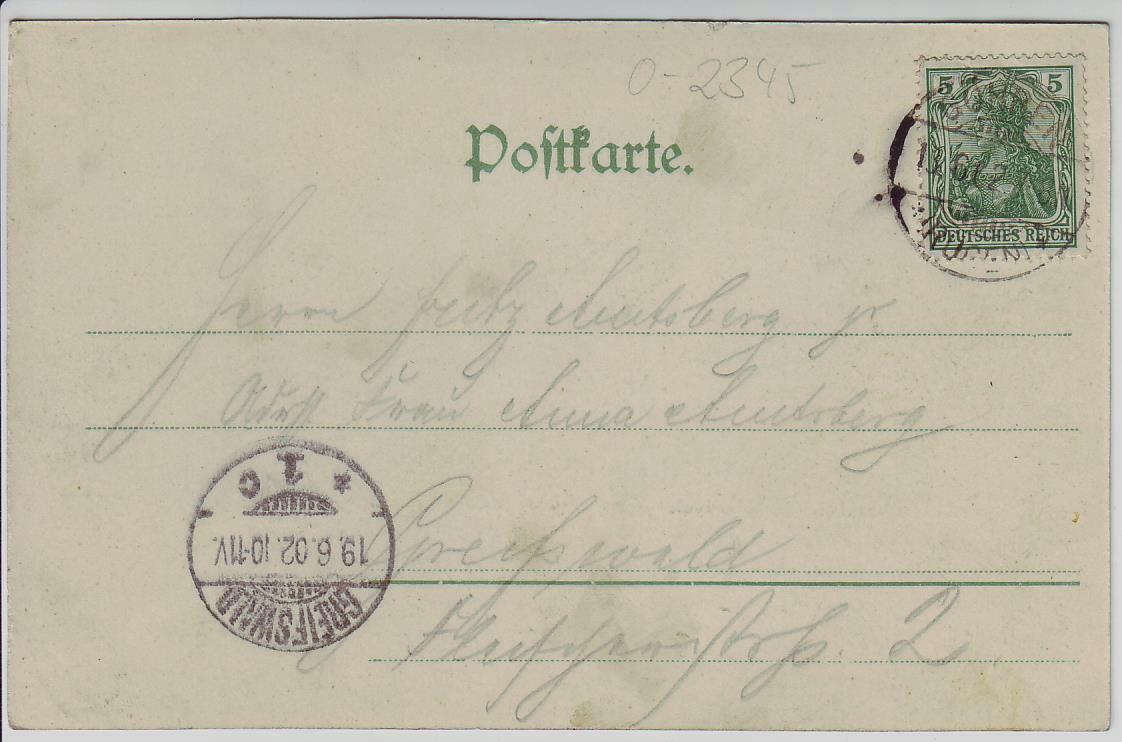 0-2345
Postkarte.
5 5
DEUTSCHES REICH
Herrn Fritz Amtsberg jr.
Frau Anna Amtsberg
Greifswald
Fleischerstrß. 2.
* 1 C
19.6.02.10-11V.
GREIFSWALD